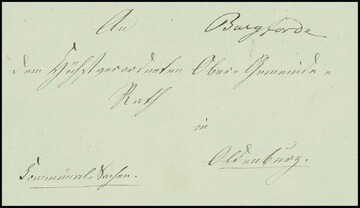 An Burgforde
dem Hochverordneten Ober-Gemeinde-
Rath
in
Oldenburg.
Communal-Sachen.